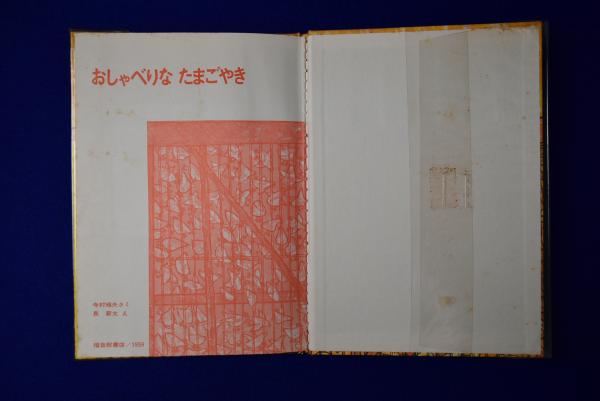 おしゃべりな たまごやき
寺村輝夫 さく
長 新太 え
福音館書店/1959